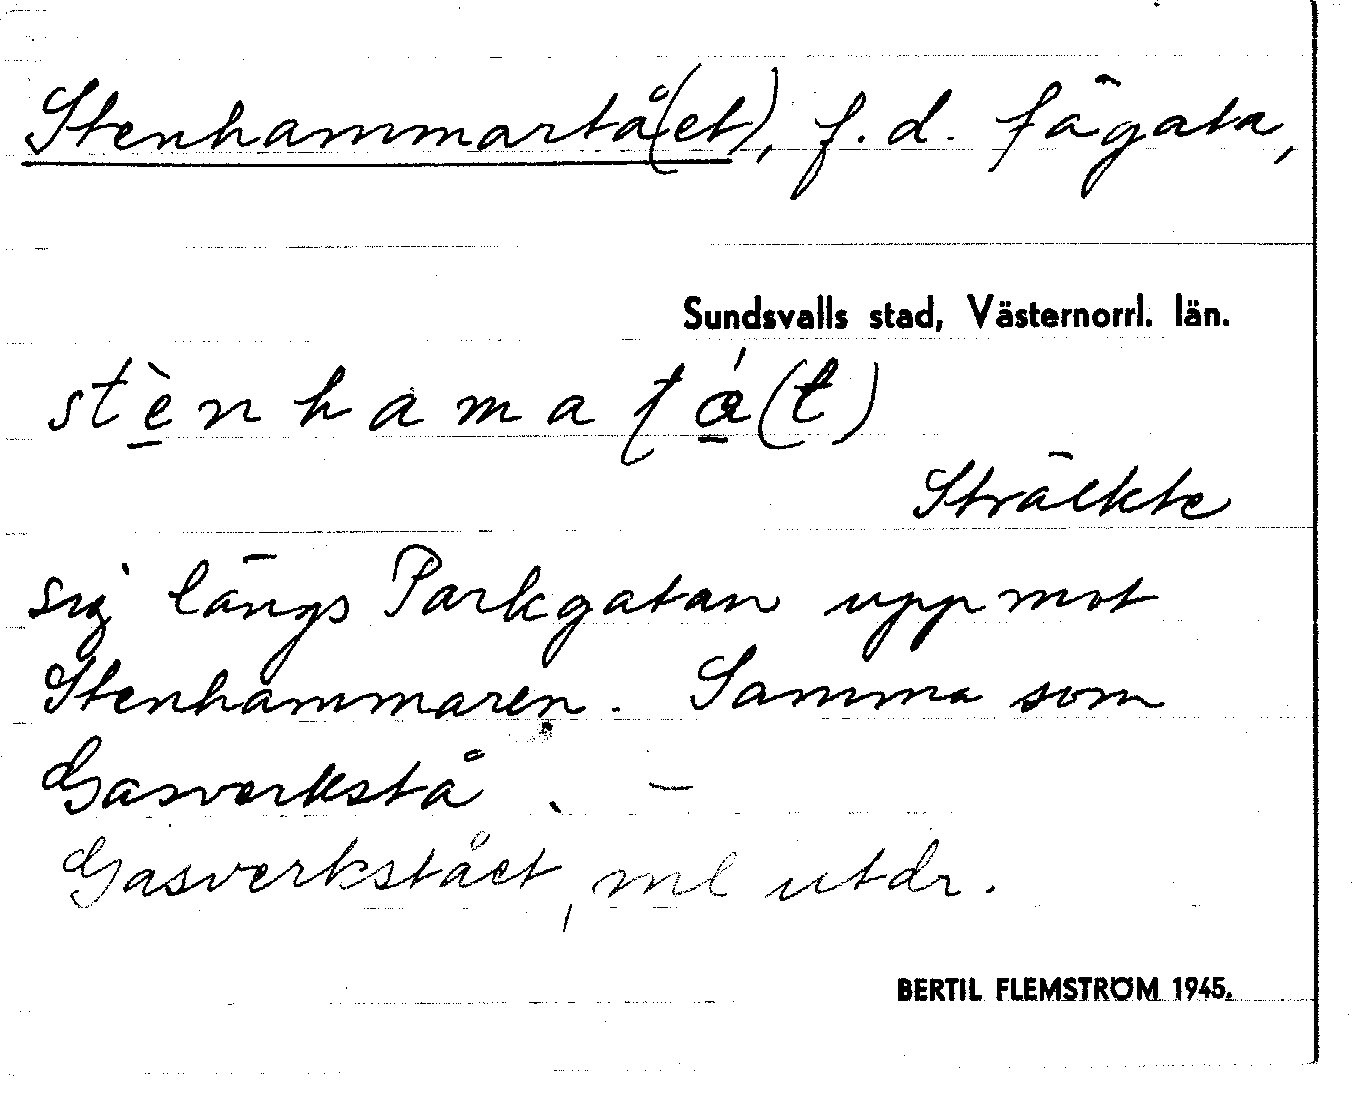 Stenhammartå(et), f.d. fägata,
Sundsvalls stad, Västernorrl. län.
stènhamatá(t)
Sträckte
sig längs Parkgatan upp mot
Stenhammaren. Samma som
Gasverkstå. –
Gasverkstået, ml utdr.
BERTIL FLEMSTRÖM 1945.